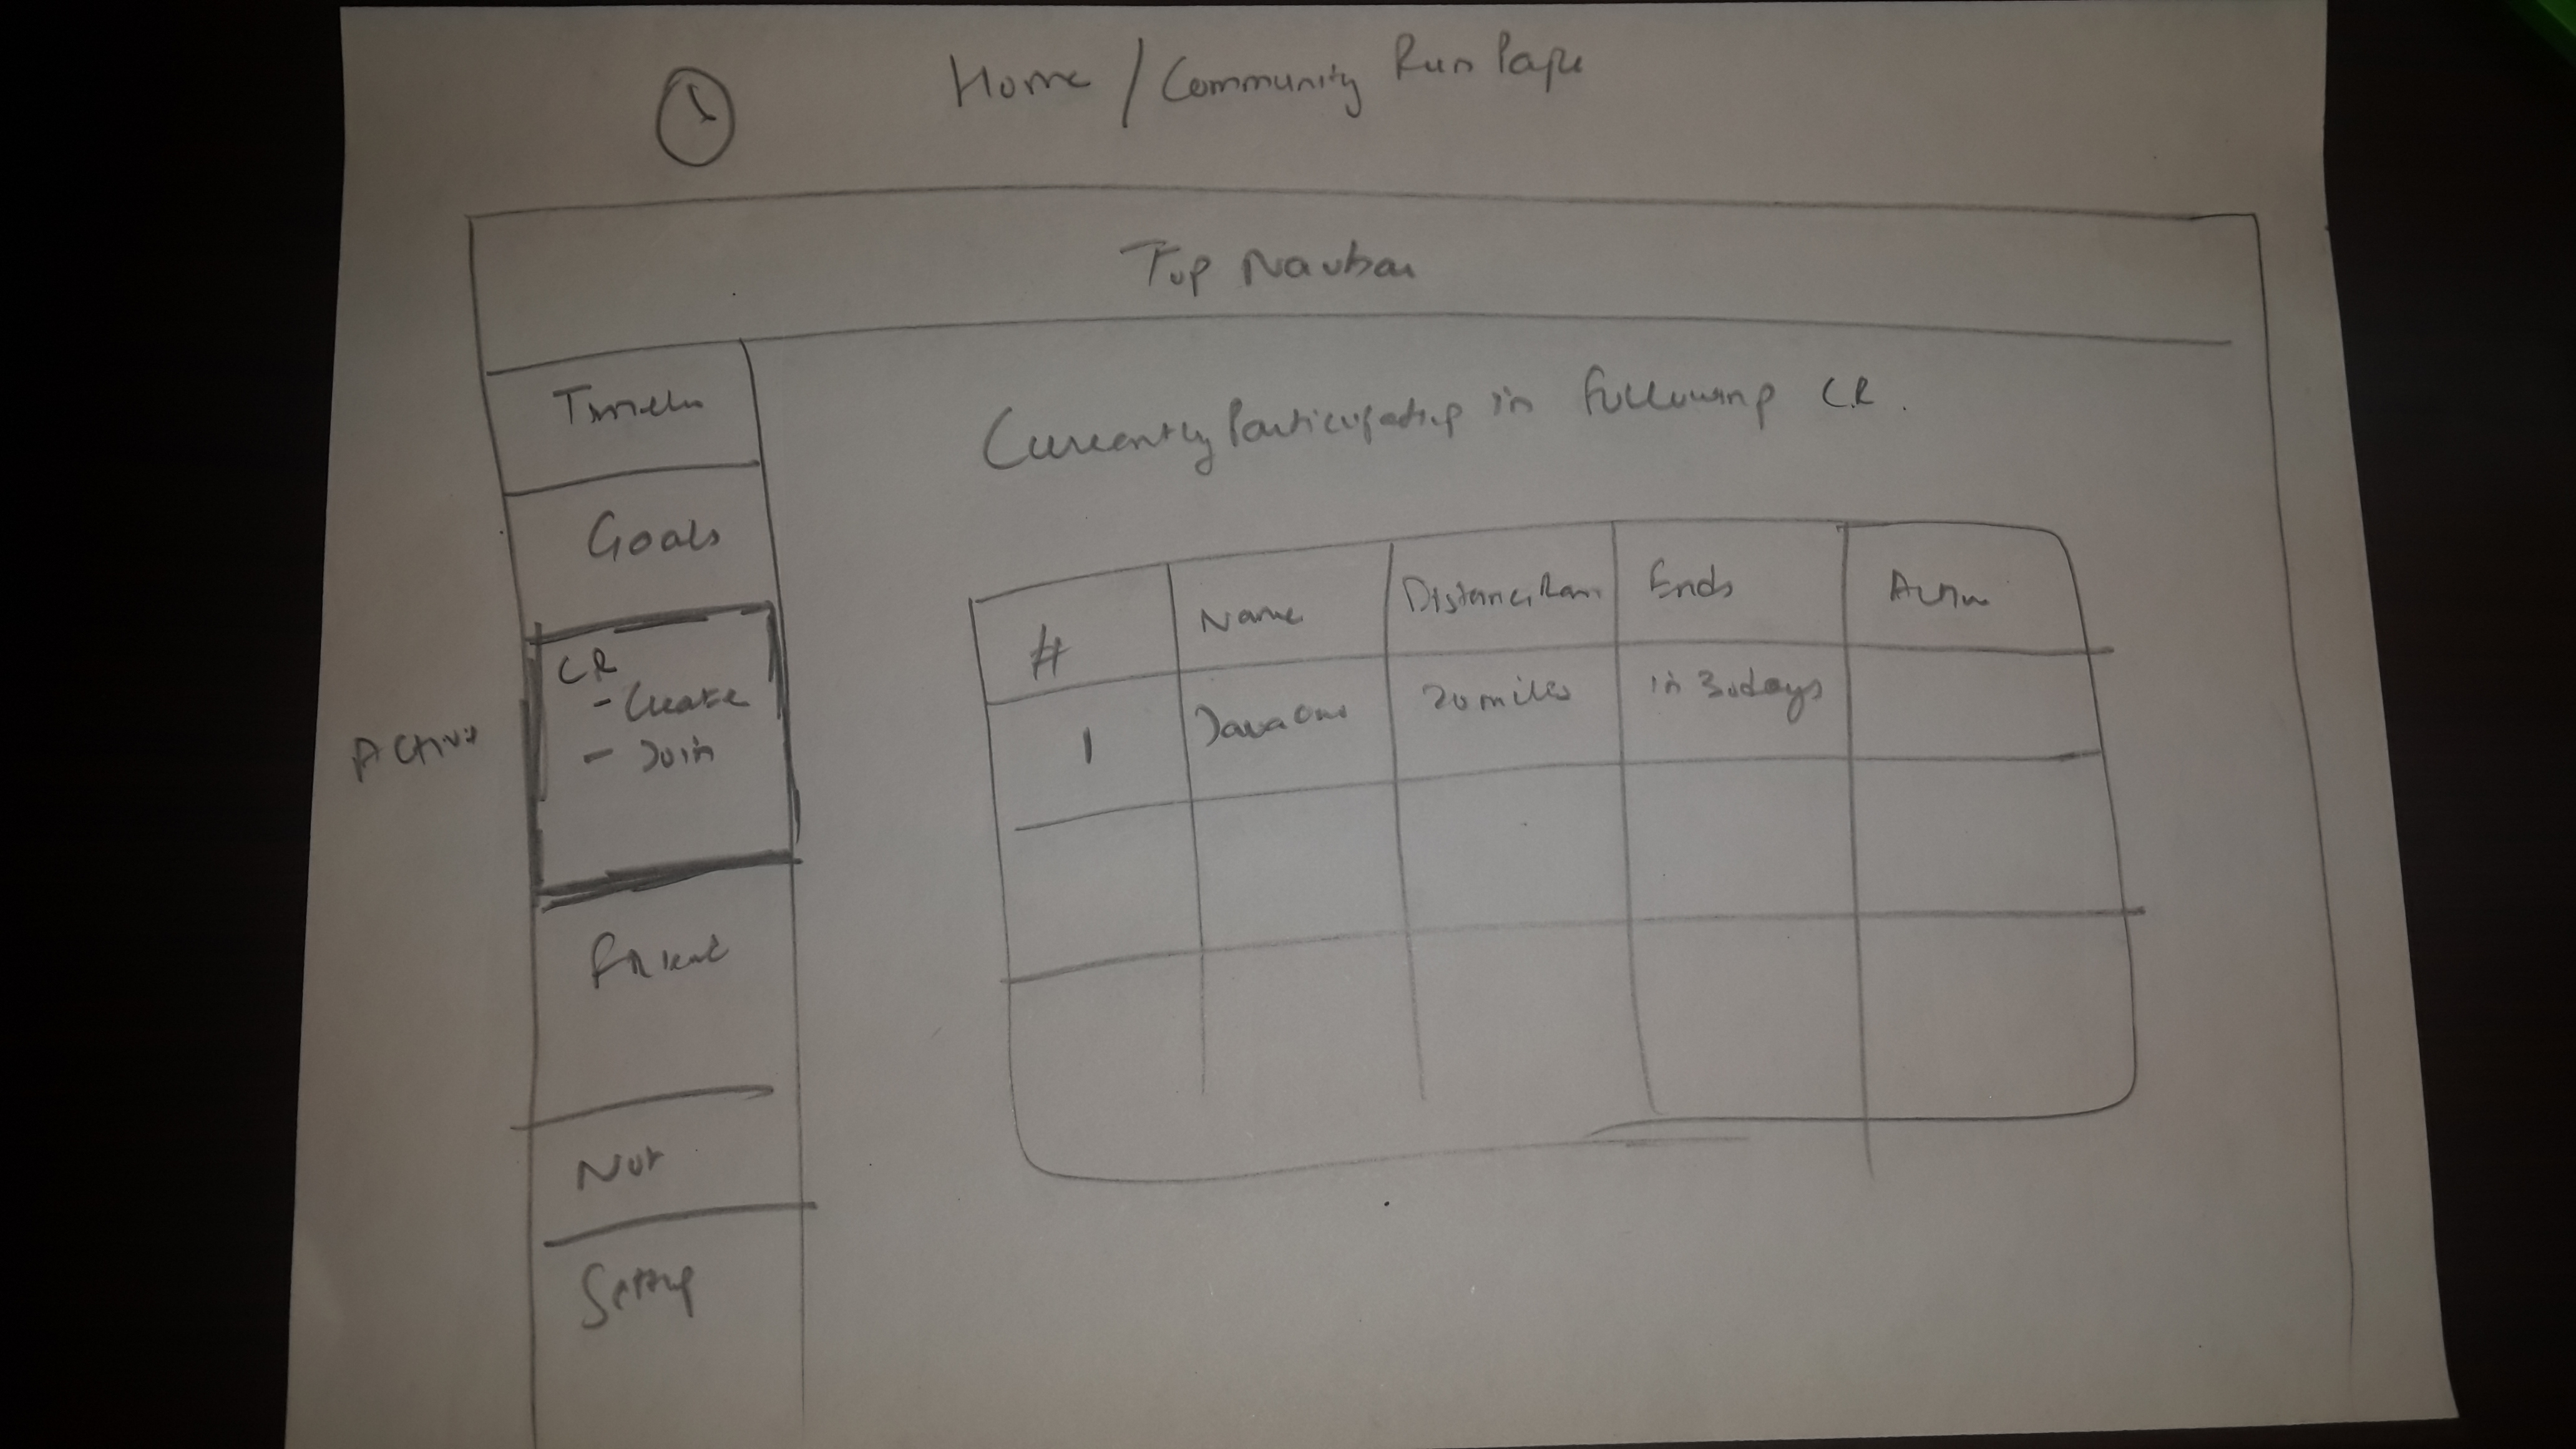 Home / Community Run Page
Top Navbar
Timeln
Goals
CR
- Create
- Join
Active
Friend
Not
Setting
Currently Participating in following CR.
# Name Distance Ran Ends Action
1 JavaOne 20 miles in 30 days